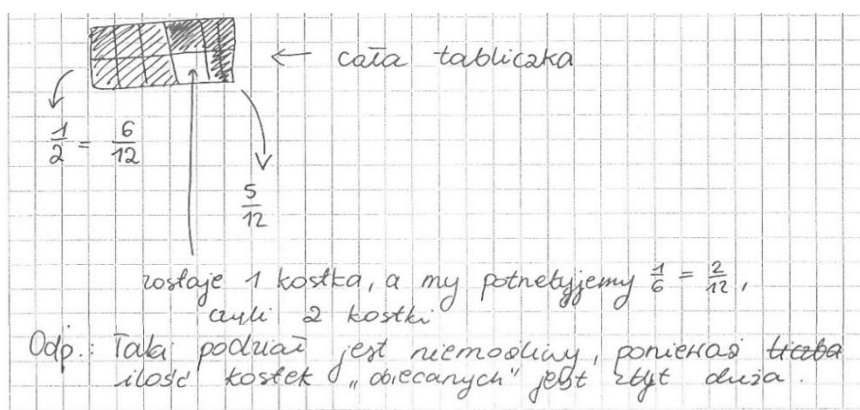 ← cała tabliczka
1/2 = 6/12
5/12
zostaje 1 kostka, a my potrzebujemy 1/6 = 2/12,
czyli 2 kostki
Odp.: Taki podział jest niemożliwy, ponieważ liczba
ilość kostek „obiecanych" jest zbyt duża.